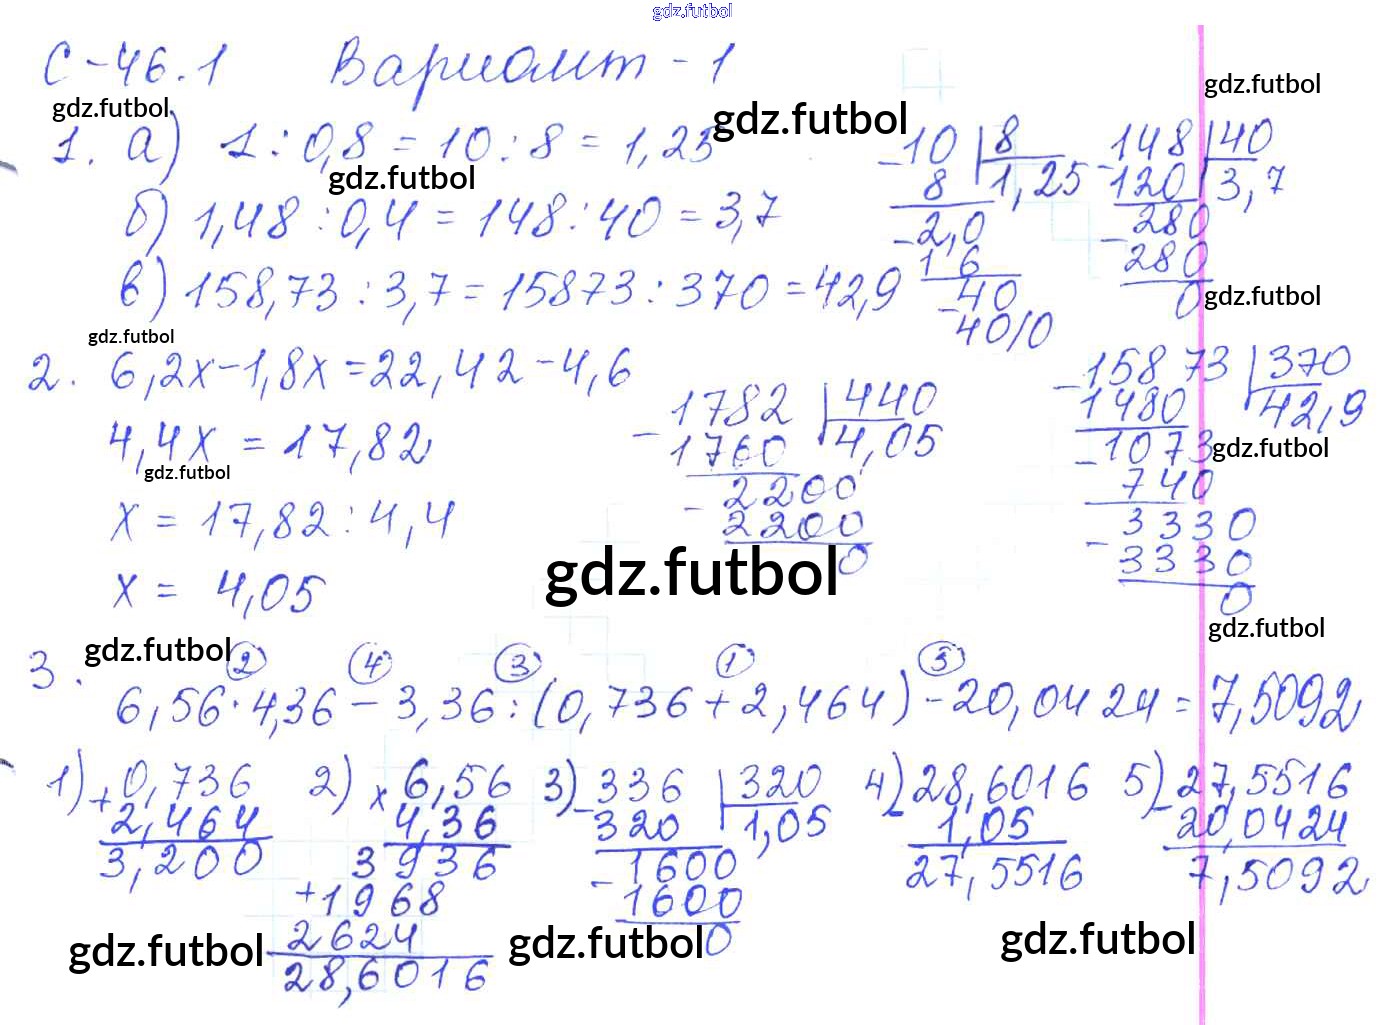 gdz.futbol
С-46.1 Вариант - 1
gdz.futbol
gdz.futbol
gdz.futbol
1. а) 1 : 0,8 = 10 : 8 = 1,25
gdz.futbol
б) 1,48 : 0,4 = 148 : 40 = 3,7
в) 15 8,73 : 3,7 = 15873 : 370 = 42,9
-10 | 8
8 | 1,25
-2,0
1 6
-40
40/0
-148 | 40
120 | 3,7
-280
280
0
gdz.futbol
gdz.futbol
2. 6,2х-1,8х=22,42-4,6
4,4х = 17,82
gdz.futbol
х = 17,82 : 4,4
х = 4,05
-1782 | 440
1760 | 4,05
-2200
2200
0
-15873 | 370
1480 | 42,9
-1073
gdz.futbol
740
-3330
3330
0
gdz.futbol
gdz.futbol
gdz.futbol
3. ② ④ ③ ① ⑤
6,56·4,36 - 3,36:(0,736+2,464)-20,0424=7,5092
1) +0,736
2,464
3,200
2) х 6,56
4,36
3936
+1968
2624
28,6016
3) -336 | 320
320 | 1,05
-1600
1600
0
4) -28,6016
1,05
27,5516
5) -27,5516
20,0424
7,5092
gdz.futbol
gdz.futbol
gdz.futbol